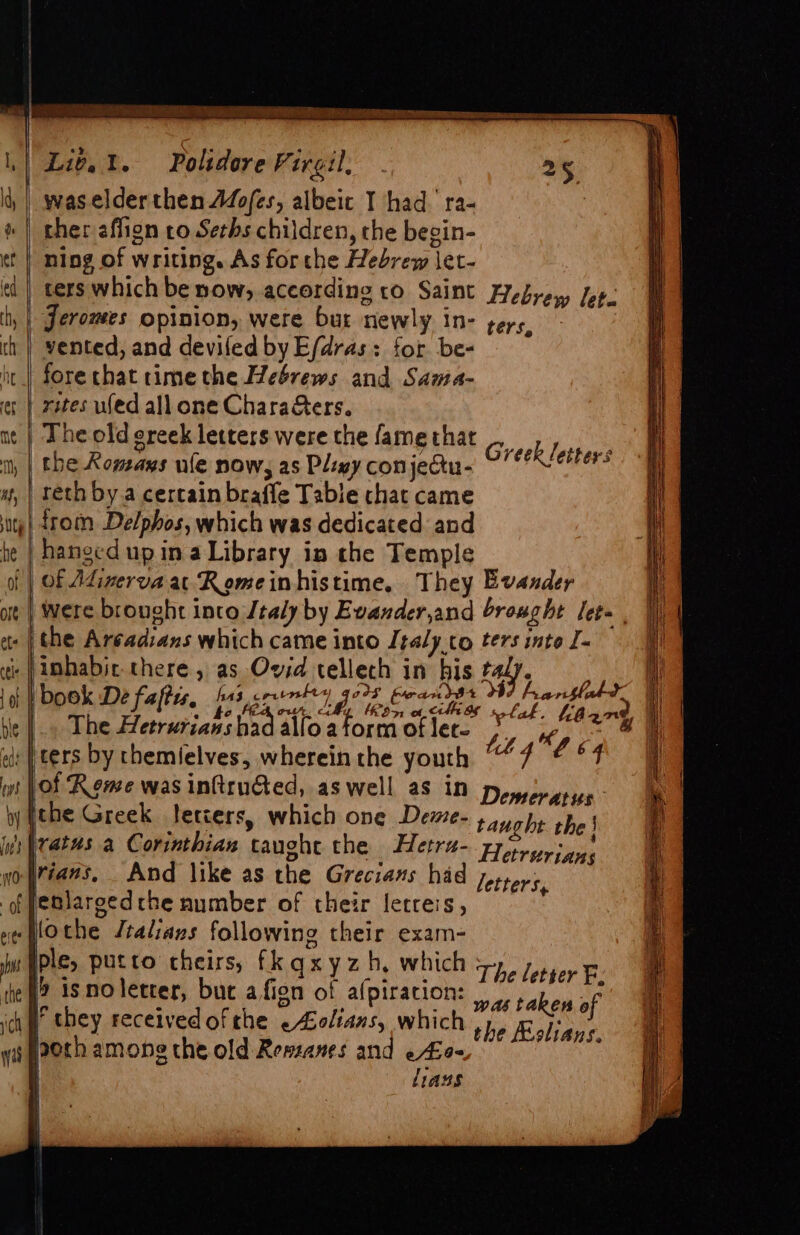 Lib. I. Polidore Virgil. 25
was elder then Moses, albeit I had ra-
ther assign to Seths children, the begin-
ning of writing. As for the Hebrew let-
ters which be now, according to Saint
Hebrew let-
Jeromes opinion, were but newly in-
ters.
vented, and devised by Esdras: for be-
fore that time the Hebrews and Sama-
rites used all one Characters.
The old greek letters were the same that
Greek letters
the Romans use now, as Pliny conjectu-
reth by a certain brasse Table that came
from Delphos, which was dedicated and
hanged up in a Library in the Temple
of Minerva at Rome in his time. They
Evander
were brought into Italy by Evander, and
brought let-
the Arcadians which came into Italy to
ters into I-
inhabit there, as Ovid telleth in his
taly.
book De fastis. his country gods
The Hetrurians had also a form of let-
ters by themselves, wherein the youth
of Rome was instructed, as well as in
Demeratus
the Greek letters, which one Deme-
taught the
ratus a Corinthian taught the Hetru-
Hetrurians
rians. And like as the Grecians had
letters,
enlarged the number of their letters,
so the Italians following their exam-
ple, put to theirs, f k q x y z h, which
The letter F.
h is no letter, but a sign of aspiration:
was taken of
F they received of the Æolians, which
the Æolians.
both among the old Romanes and Æo-
lians